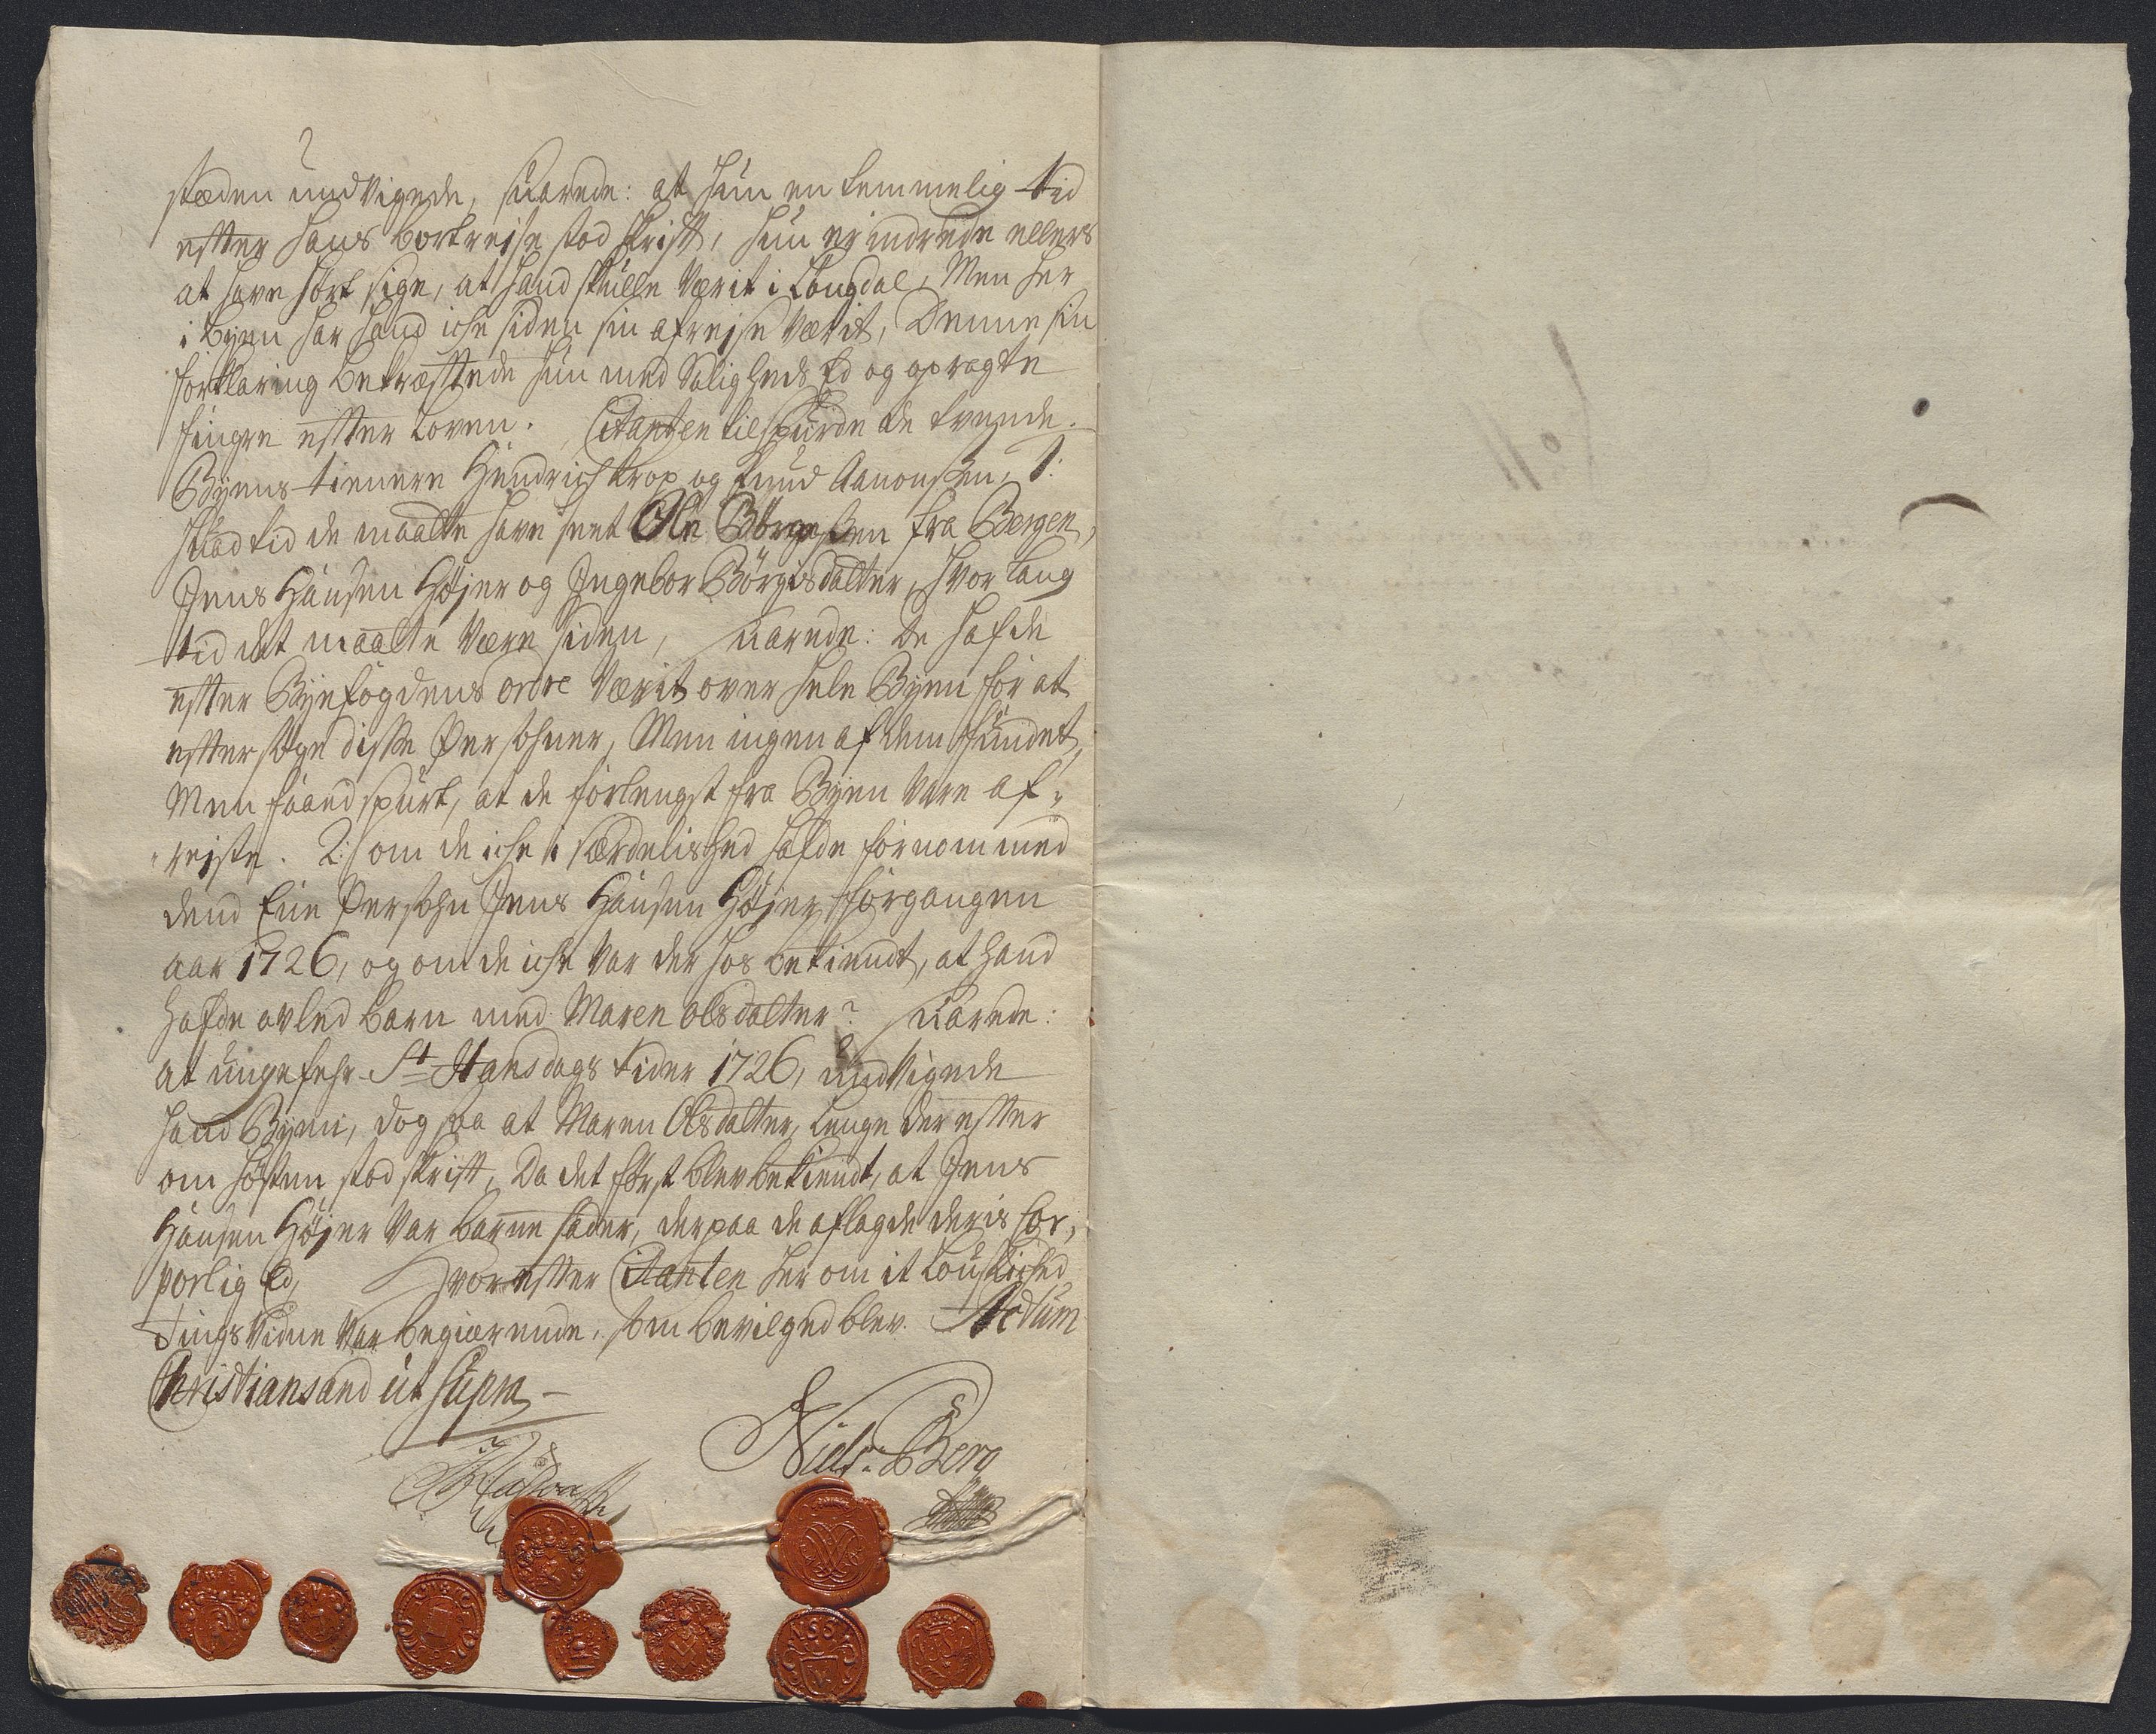 stæden undvigede, suarede: at hun en temmelig tid
efter hans bortreise stod skrift, hun erindrede ellers
at have hört sige, at hand skulle værit i Langdal, Men her
i Byen har hand iche siden sin afrejse værit, Denne sin
forklaring bekræftede hun med Saligheds Ed og opragte
fingre efter Loven. Citanten tilspurde de tvende
Byens tienere Hendrich Krop og Knud Aanonsen, 1:
huad tid de maatte have seet Ole Börgesen fra Bergen,
Jens Hansen Høyer og Ingebor Börgisdatter, hvor lang
tid det maatte være siden, suarede: De hafde
efter Byefogdens ordre værit over hele Byen for at
eftersøge disse Persohner, Men ingen af dem fundet,
Men faaed spurt, at de forlengst fra Byen vare af-
reiste. 2: om de iche i særdelished hafde fornommed
dend Ene Persohn Jens Hansen Høyer forgangen
aar 1726, og om de iche var der hos bekiendt, at hand
hafde avled barn med Maren Olsdatter? suarede:
at ungefehr St Hansdags tider 1726, undvigede
hand Byen, dog saa at Maren Olsdatter, lenge der efter
om høsten stod skrift, Da det först blev bekiendt, at Jens
Hansen Høyer var barne fader, derpaa de aflagde deris Cor-
porlig Ed, Hvorefter Citanten her om it
Tings Vidne var begiærende, som bevilged blev. Actum
Christiansand ut supra
Niels Berg